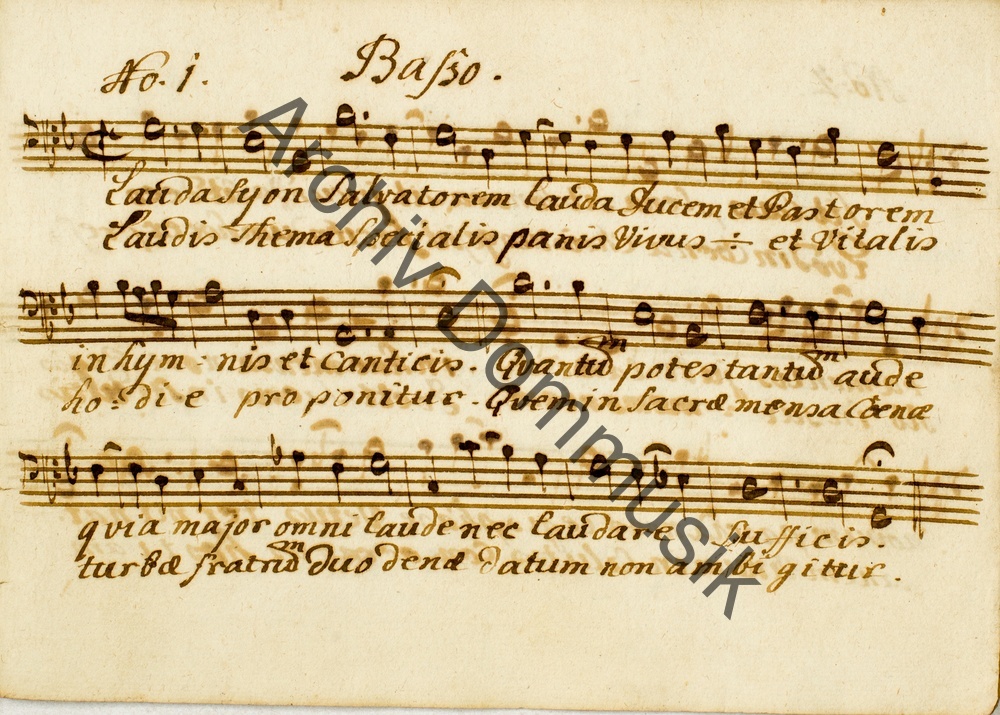 No. 1. Basso.
Lauda Syon Salvatorem lauda Ducem et Pastorem
Laudis Thema Specialis panis Vivus ÷ et Vitalis
in hym - nis et Canticis. Quantũm potes tantũm aude
ho = di e proponitur. Quem in Sacræ mensa Cœnæ
qvia major omni laude nec laudare Sufficis.
turbæ fratrũm duo denæ datum non ambi gitur.
Archiv Dommusik